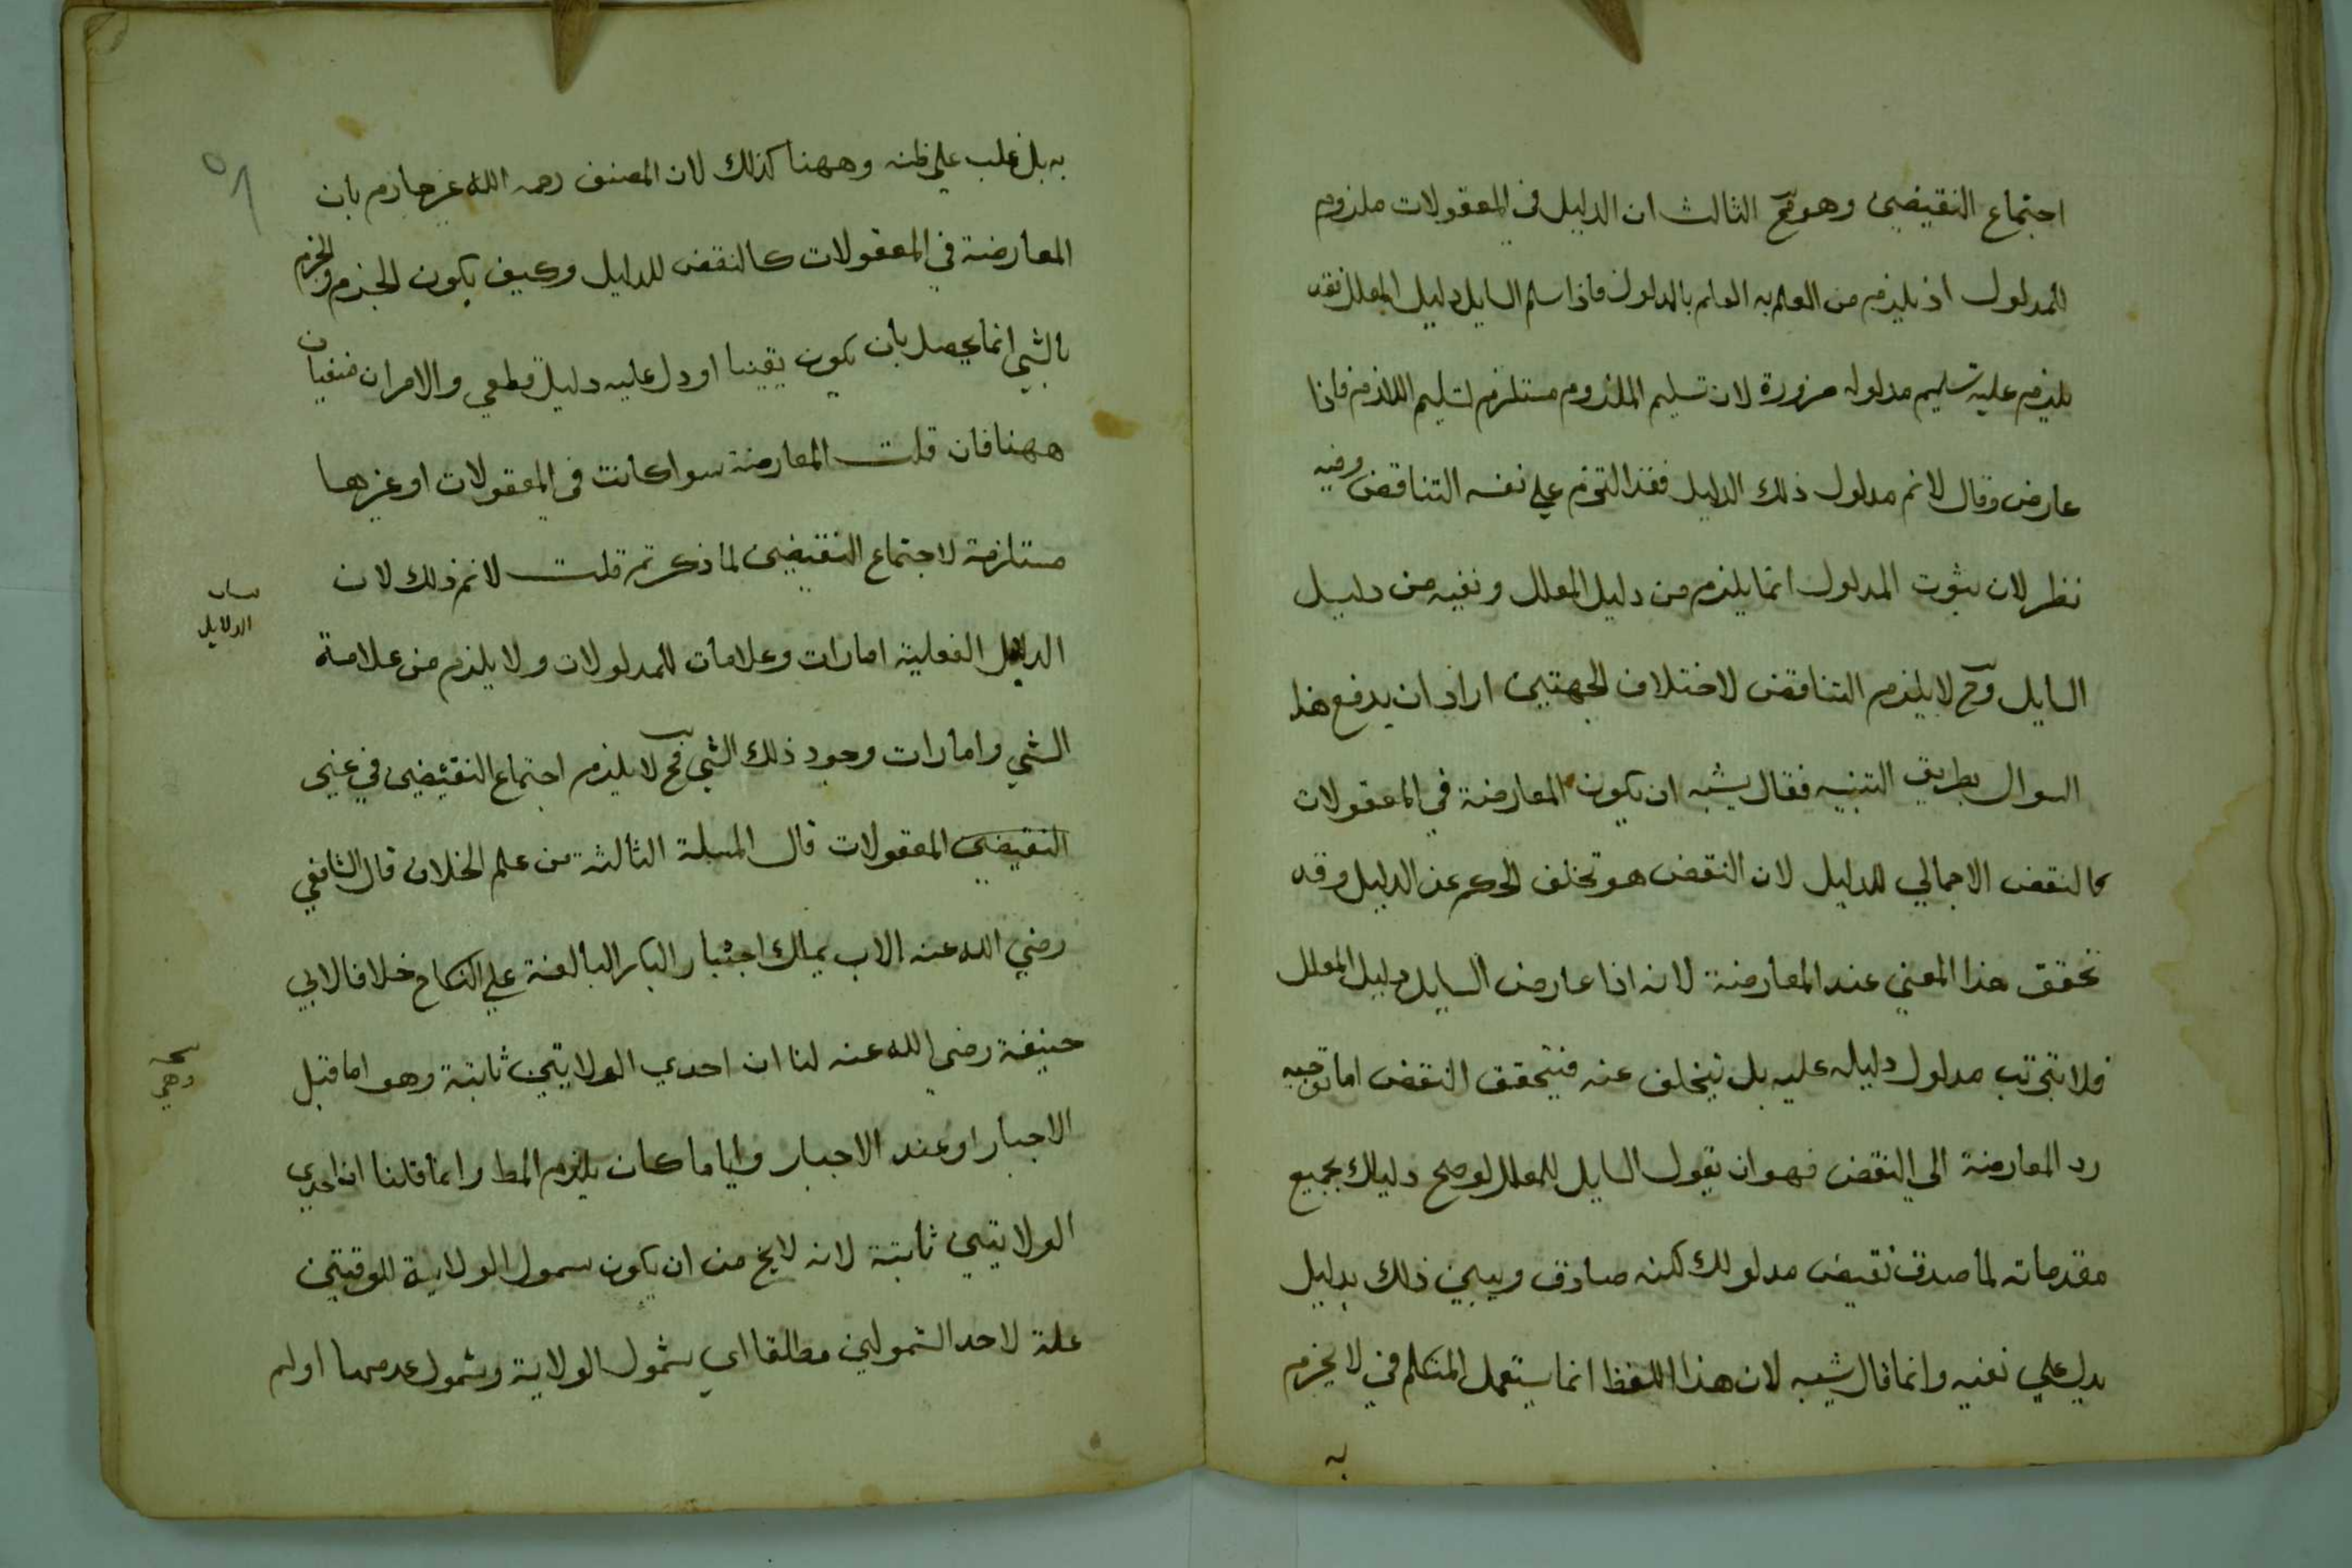 اجتماع النقيضين وهو مح الثالث ان الدليل في المعقولات ملزوم
للمدلول اذ يلزم من العلم به العلم بالمدلول فاذا سلم السايل دليل المعلل فقد
يلزم عليه تسليم مدلوله ضرورة لان تسليم الملزوم مستلزم لتسليم اللازم فاذا
عارض وقال لا نم مدلول ذلك الدليل فقد التزم علي نفسه التناقض وفيه
نظر لان ثبوت المدلول انما يلزم من دليل المعلل ونفيه من دليل
السايل وح لا يلزم التناقض لاختلاف الجهتين اراد ان يدفع هذا
السوال بطريق التنبيه فقال يشبه ان يكون المعارضة في المعقولات
كالنقض الاجمالي للدليل لان النقض هو تخلف الحكم عن الدليل وقد
تحقق هذا المعني عند المعارضة لانه اذا عارض السايل دليل المعلل
فلا يترتب مدلول دليله عليه بل يتخلف عنه فيتحقق النقض اما توجيه
رد المعارضة الي النقض فهو ان يقول السايل للمعلل لو صح دليلك بجميع
مقدماته لما صدق نقيض مدلولك لكنه صادق ويبين ذلك بدليل
يدل علي نفيه وانما قال يشبه لان هذا اللفظ انما يستعمل المتكلم في لا يجزم
به
به بل غلب علي ظنه وههنا كذلك لان المصنف رحمه الله غير جازم بان
المعارضة في المعقولات كالنقض للدليل وكيف يكون الجزم والجزم
بالشي انما يحصل بان يكون يقينا او دل عليه دليل قطعي والامران منفيان
ههنا فان قلت المعارضة سوا كانت في المعقولات او غيرها
مستلزمة لاجتماع النقيضين لما ذكرتم قلت لا نم ذلك لان
الدلايل الفعلية امارات وعلامات للمدلولات ولا يلزم من علامة
الدلايل
الشي وامارات وجود ذلك الشي فح لا يلزم اجتماع النقيضين في غير
النقيضين المعقولات قال المسلة الثالثة من علم الخلاف قال الشافعي
رضي الله عنه الاب يملك اجبار البكر البالغة علي النكاح خلافا لابي
حنيفة رضي الله عنه لنا ان احدي الولايتين ثابتة وهو اما قبل
وهي
الاجبار او عند الاجبار وايا ما كان يلزم المط وانما قلنا ان احدي
الولايتين ثابتة لانه لا يخ من ان يكون شمول الولاية للوقتين
علة لاحد الشمولين مطلقا اي شمول الولاية وشمول عدمها اولم